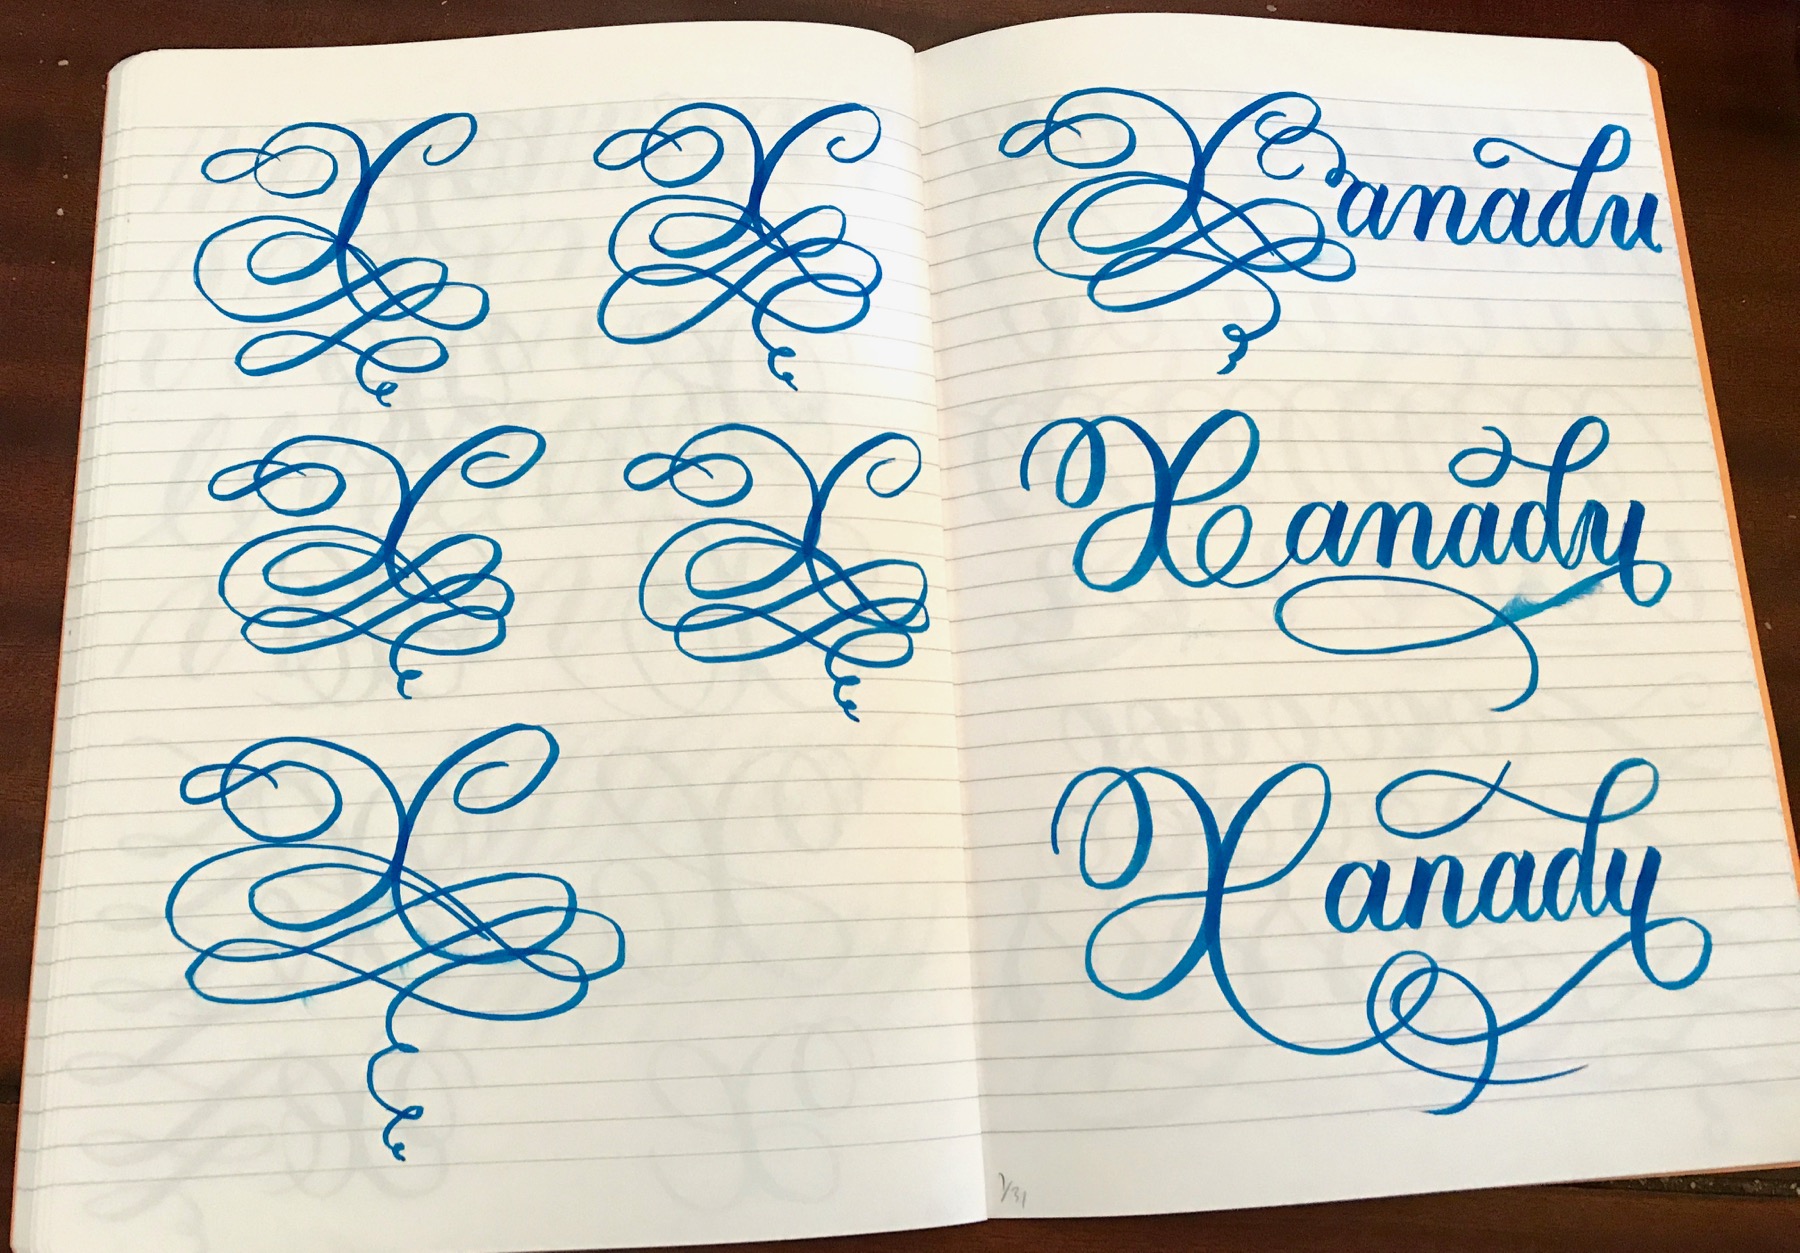 X X
X X
X
Xanadu
Xanadu
Xanadu
1/31